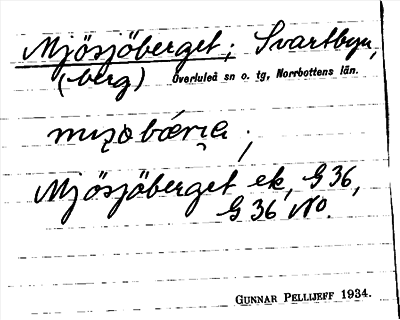 Mjösjöberget; Svartbyn,
(berg) Överluleå sn o. tg, Norrbottens län.
Mjösjöberget ek, G 36,
G 36 NO.
GUNNAR PELLIJEFF 1934.